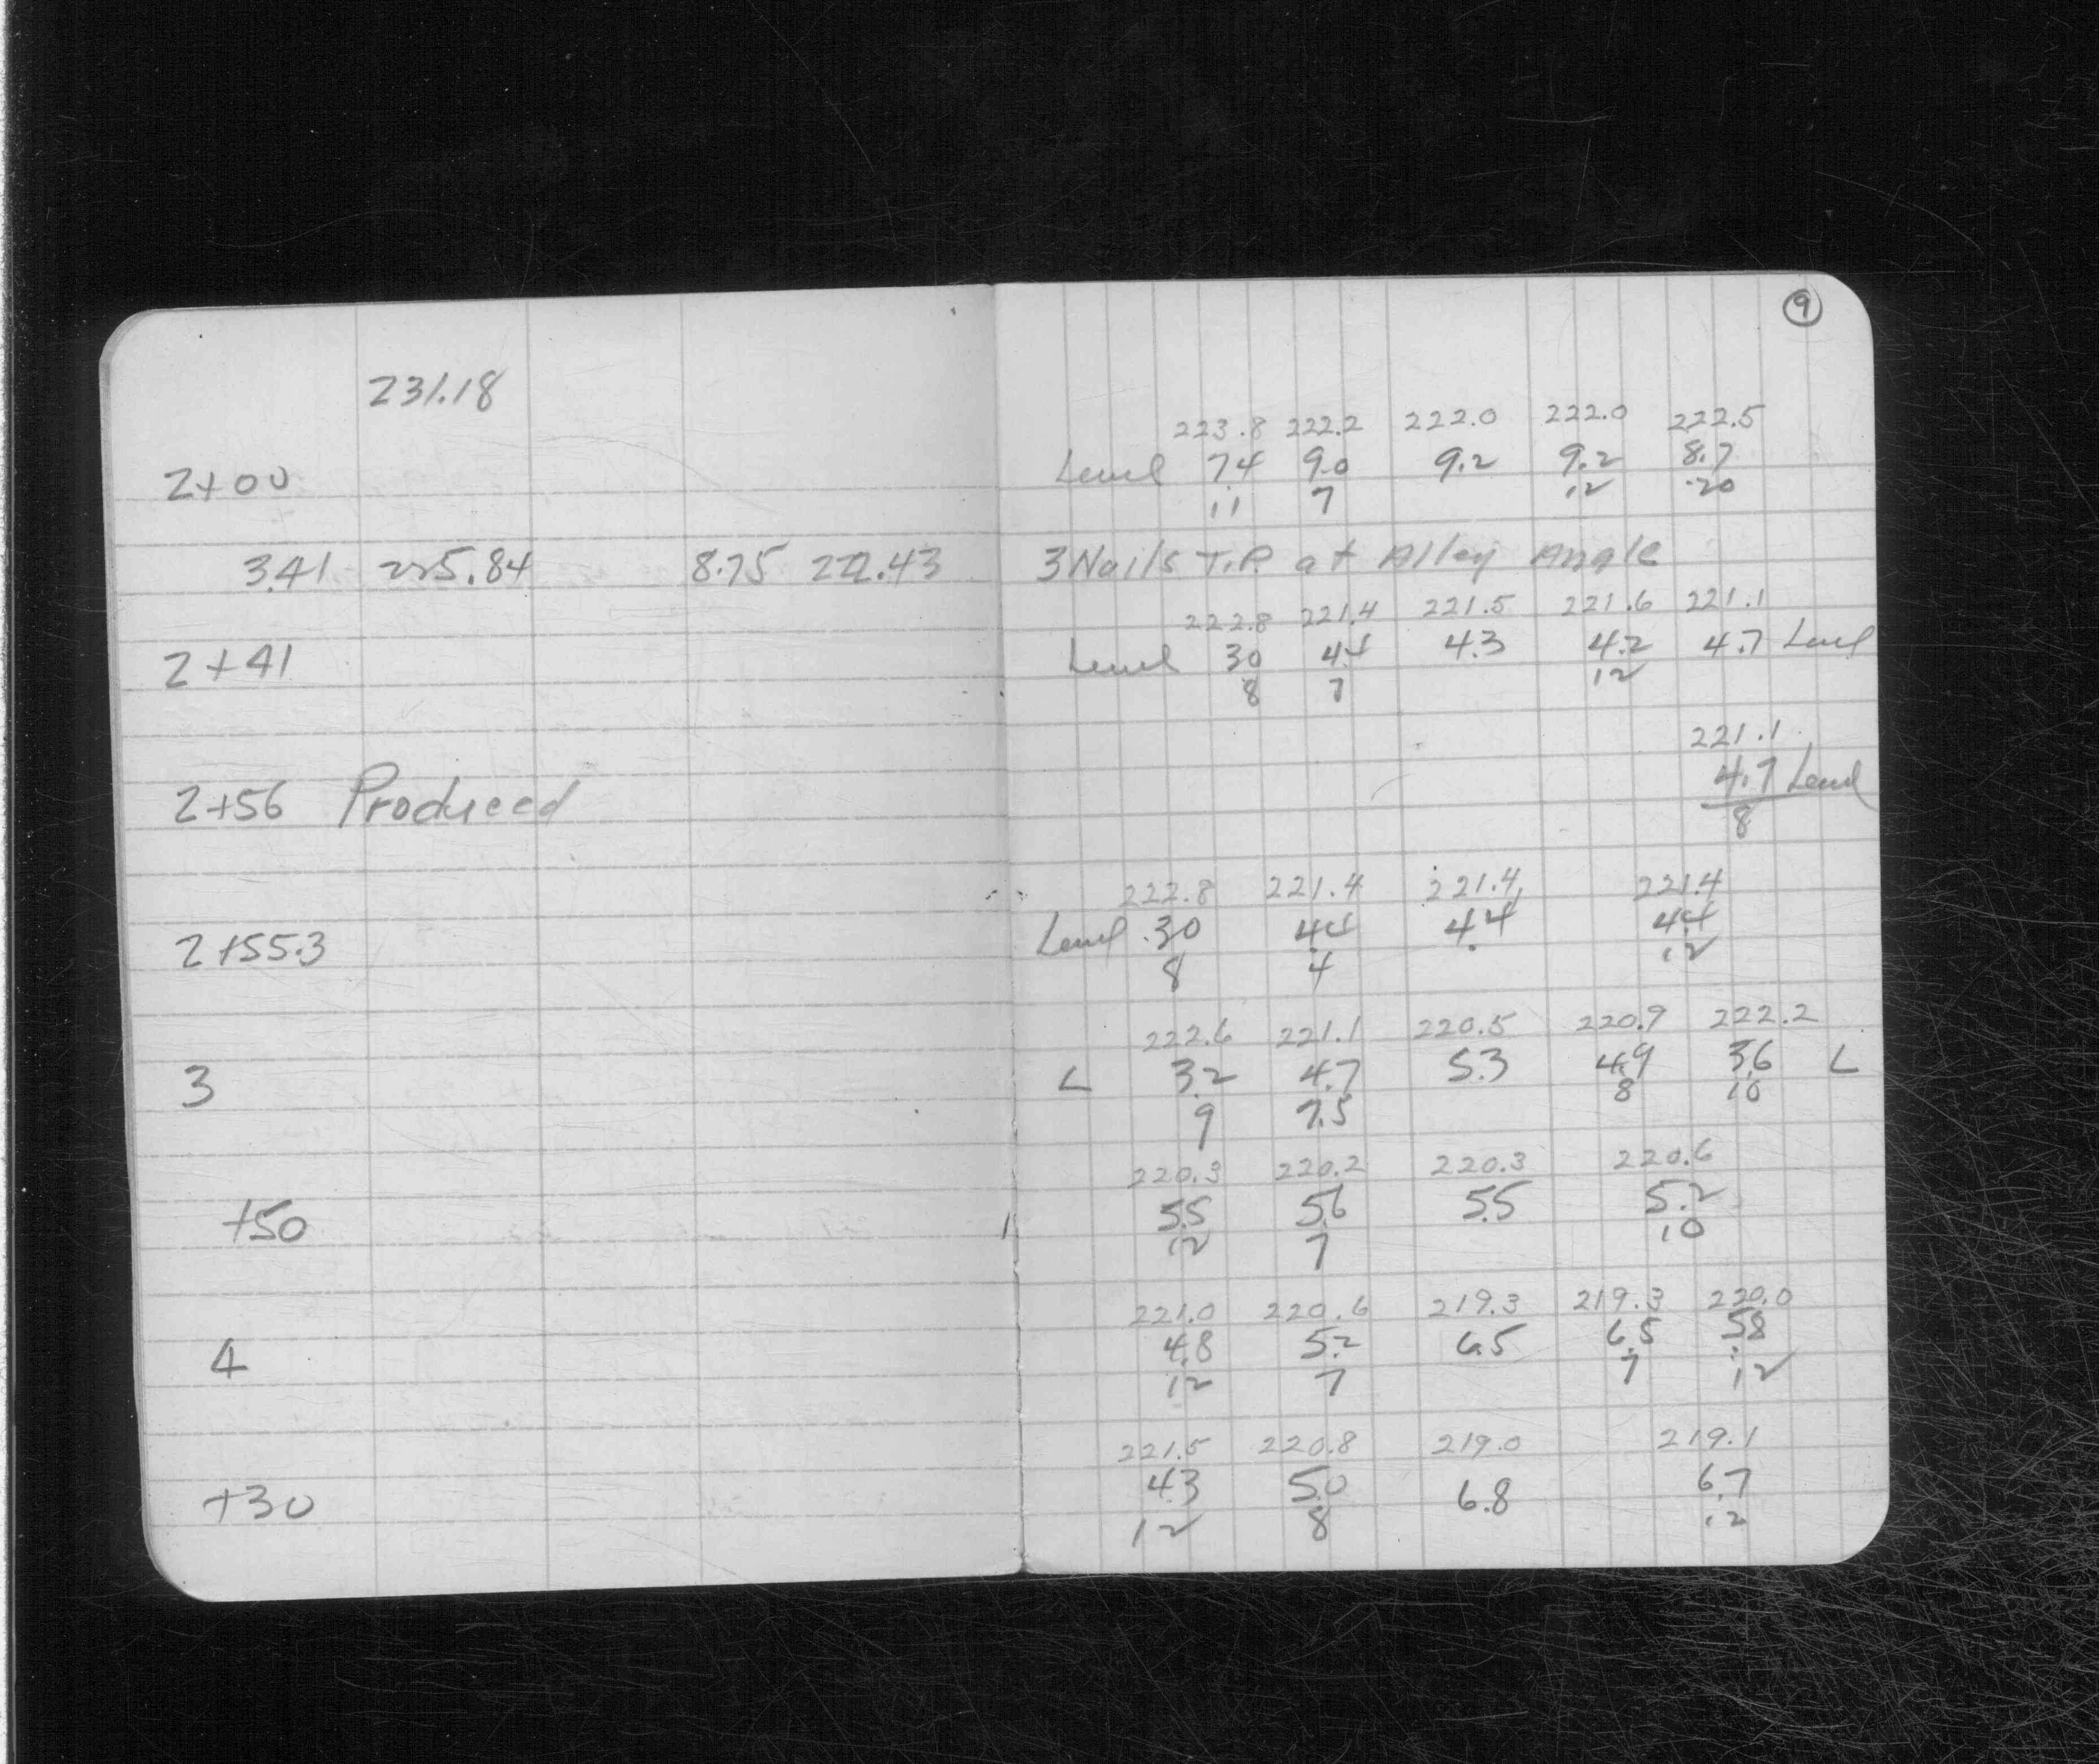 9
231.18
223.8 222.2 222.0 222.0 222.5
2+00 Level 7.4 9.0 9.2 9.2 8.7
11 7 12 20
3.41 225.84 8.75 222.43 3 Nails T.P. at Alley Angle
222.8 221.4 221.5 221.6 221.1
2+41 Level 3.0 4.4 4.3 4.2 4.7 Level
8 7 12
221.1
2+56 Produced 4.7 Level
8
222.8 221.4 221.4 221.4
2+55.3 Level 3.0 4.4 4.4 4.4
8 4 12
222.6 221.1 220.5 220.9 222.2
3 L 3.2 4.7 5.3 4.9 3.6 L
9 7.5 8 10
220.3 220.2 220.3 220.6
+50 5.5 5.6 5.5 5.2
12 7 10
221.0 220.6 219.3 219.3 220.0
4 4.8 5.2 6.5 6.5 5.8
12 7 7 12
221.5 220.8 219.0 219.1
+30 4.3 5.0 6.8 6.7
12 8 12